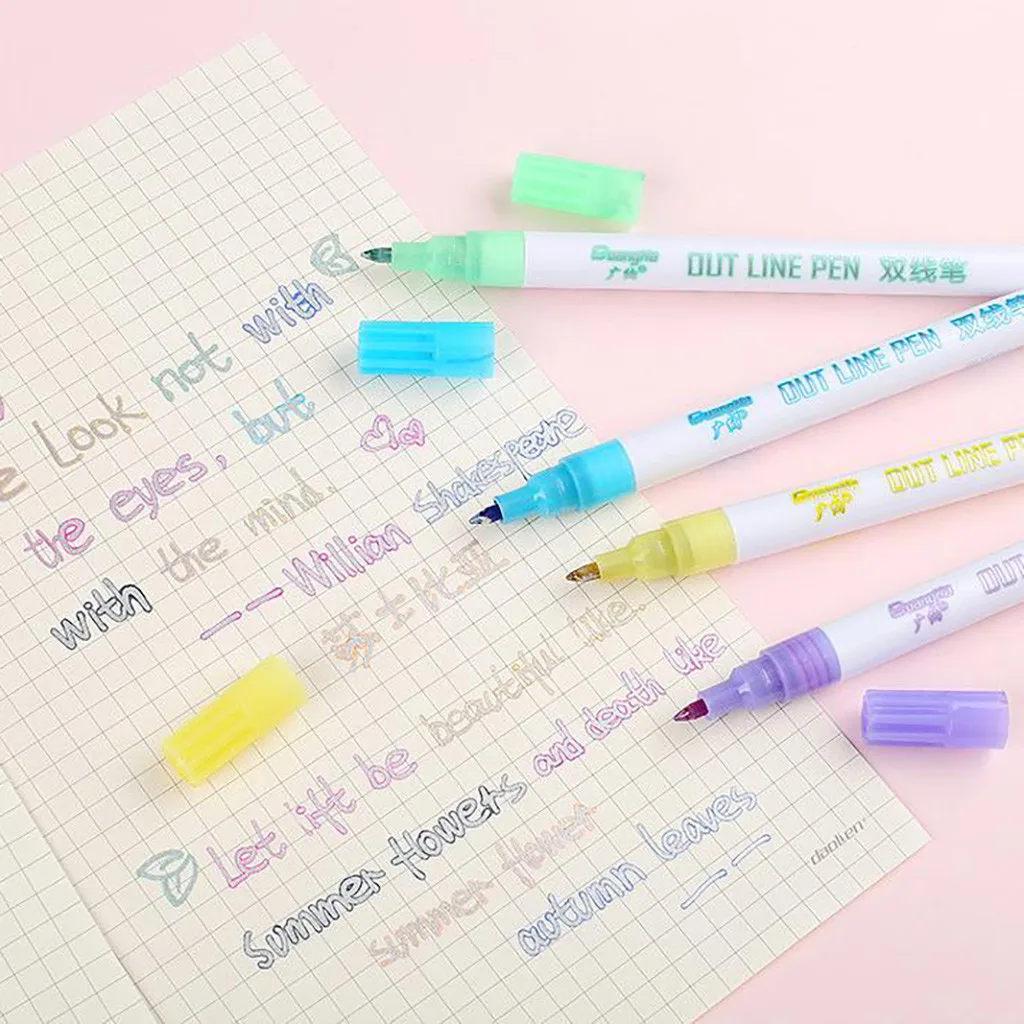 e Look not with
the eyes, but
with the mind.
——Willian Shakespeare
莎士比亚
Let lift be beautiful like
summer flowers and death like
summer flower
autumn leaves
daolien
GuangNa
广纳 OUT LINE PEN 双线笔
GuangNa
广纳 OUT LINE PEN 双线笔
GuangNa
广纳 OUT LINE P
GuangNa
广纳 OUT